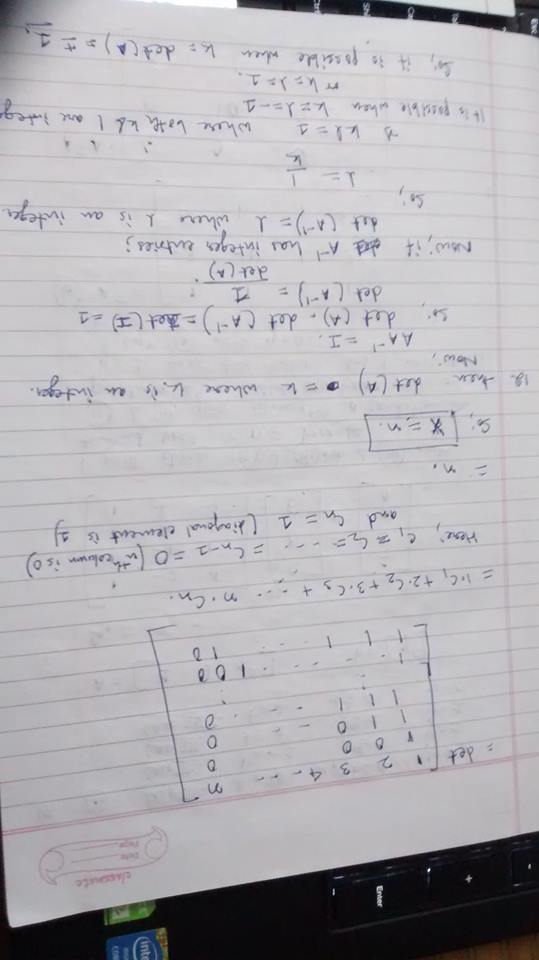 classmate
Date
Page
= det
1 2 3 4 ... n
1 0 0 0
1 1 0 ... 0
1 1 1 ... 0
⋮
1 ... 1 0 0
1 1 1 ... 1 0
= 1·C₁ + 2·C₂ + 3·C₃ + ... n·Cₙ.
Here, C₁ = C₂ = ... = Cₙ₋₁ = 0 (nth column is 0)
and Cₙ = 1 (diagonal element is 1)
= n.
So, x = n.
12. then det(A) = k where k is an integer.
Now,
AA⁻¹ = I.
So, det(A) · det(A⁻¹) = det(I) = 1
det(A⁻¹) = 1/det(A)
Now, if A⁻¹ has integer entries;
det(A⁻¹) = l, where l is an integer
So,
l = 1/k
kl = 1 where both k & l are integ
It is possible when k = l = -1
or k = l = 1.
So, it is possible when k = det(A) = ± 1.
Enter
+
Shift
Ctrl
intel